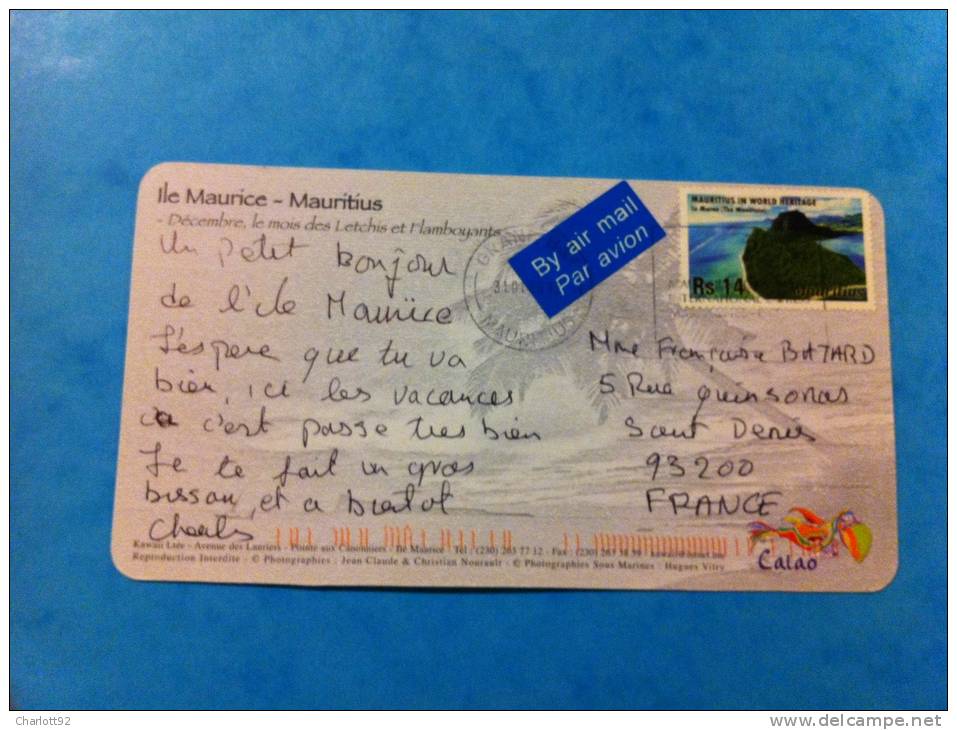 Ile Maurice - Mauritius
- Décembre, le mois des Letchis et Flamboyants
Un petit bonjour
de l'ile Maurice
J'espere que tu va
bien, ici les vacances
c'est passe tres bien
Je te fait un gros
bissou, et a bientot
Charles
By air mail
Par avion
GRAN
MAURITIUS
MAURITIUS IN WORLD HERITAGE
Le Morne
Rs 14
Mauritius
Mme Françoise BATARD
5 Rue quinsonas
Saint Denis
93200
FRANCE
Calao
Kawaii Ltée - Avenue des Lauriers - Pointe aux Canonniers - Ile Maurice - Tel : (230) 263 77 12 - Fax : (230) 263
Reproduction Interdite - © Photographies : Jean Claude & Christian Nourault - © Photographies Sous Marines : Hugues Vitry
Charlott92
www.delcampe.net